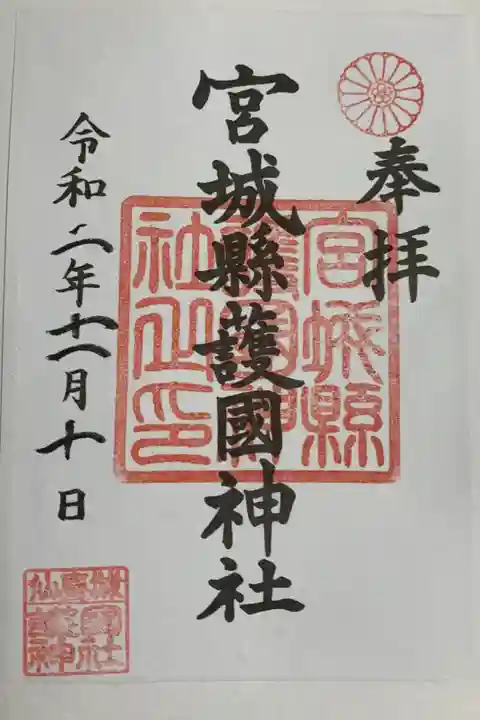 奉拝
宮城縣護國神社
令和二年十一月十日
宮城縣
護國神
社之印